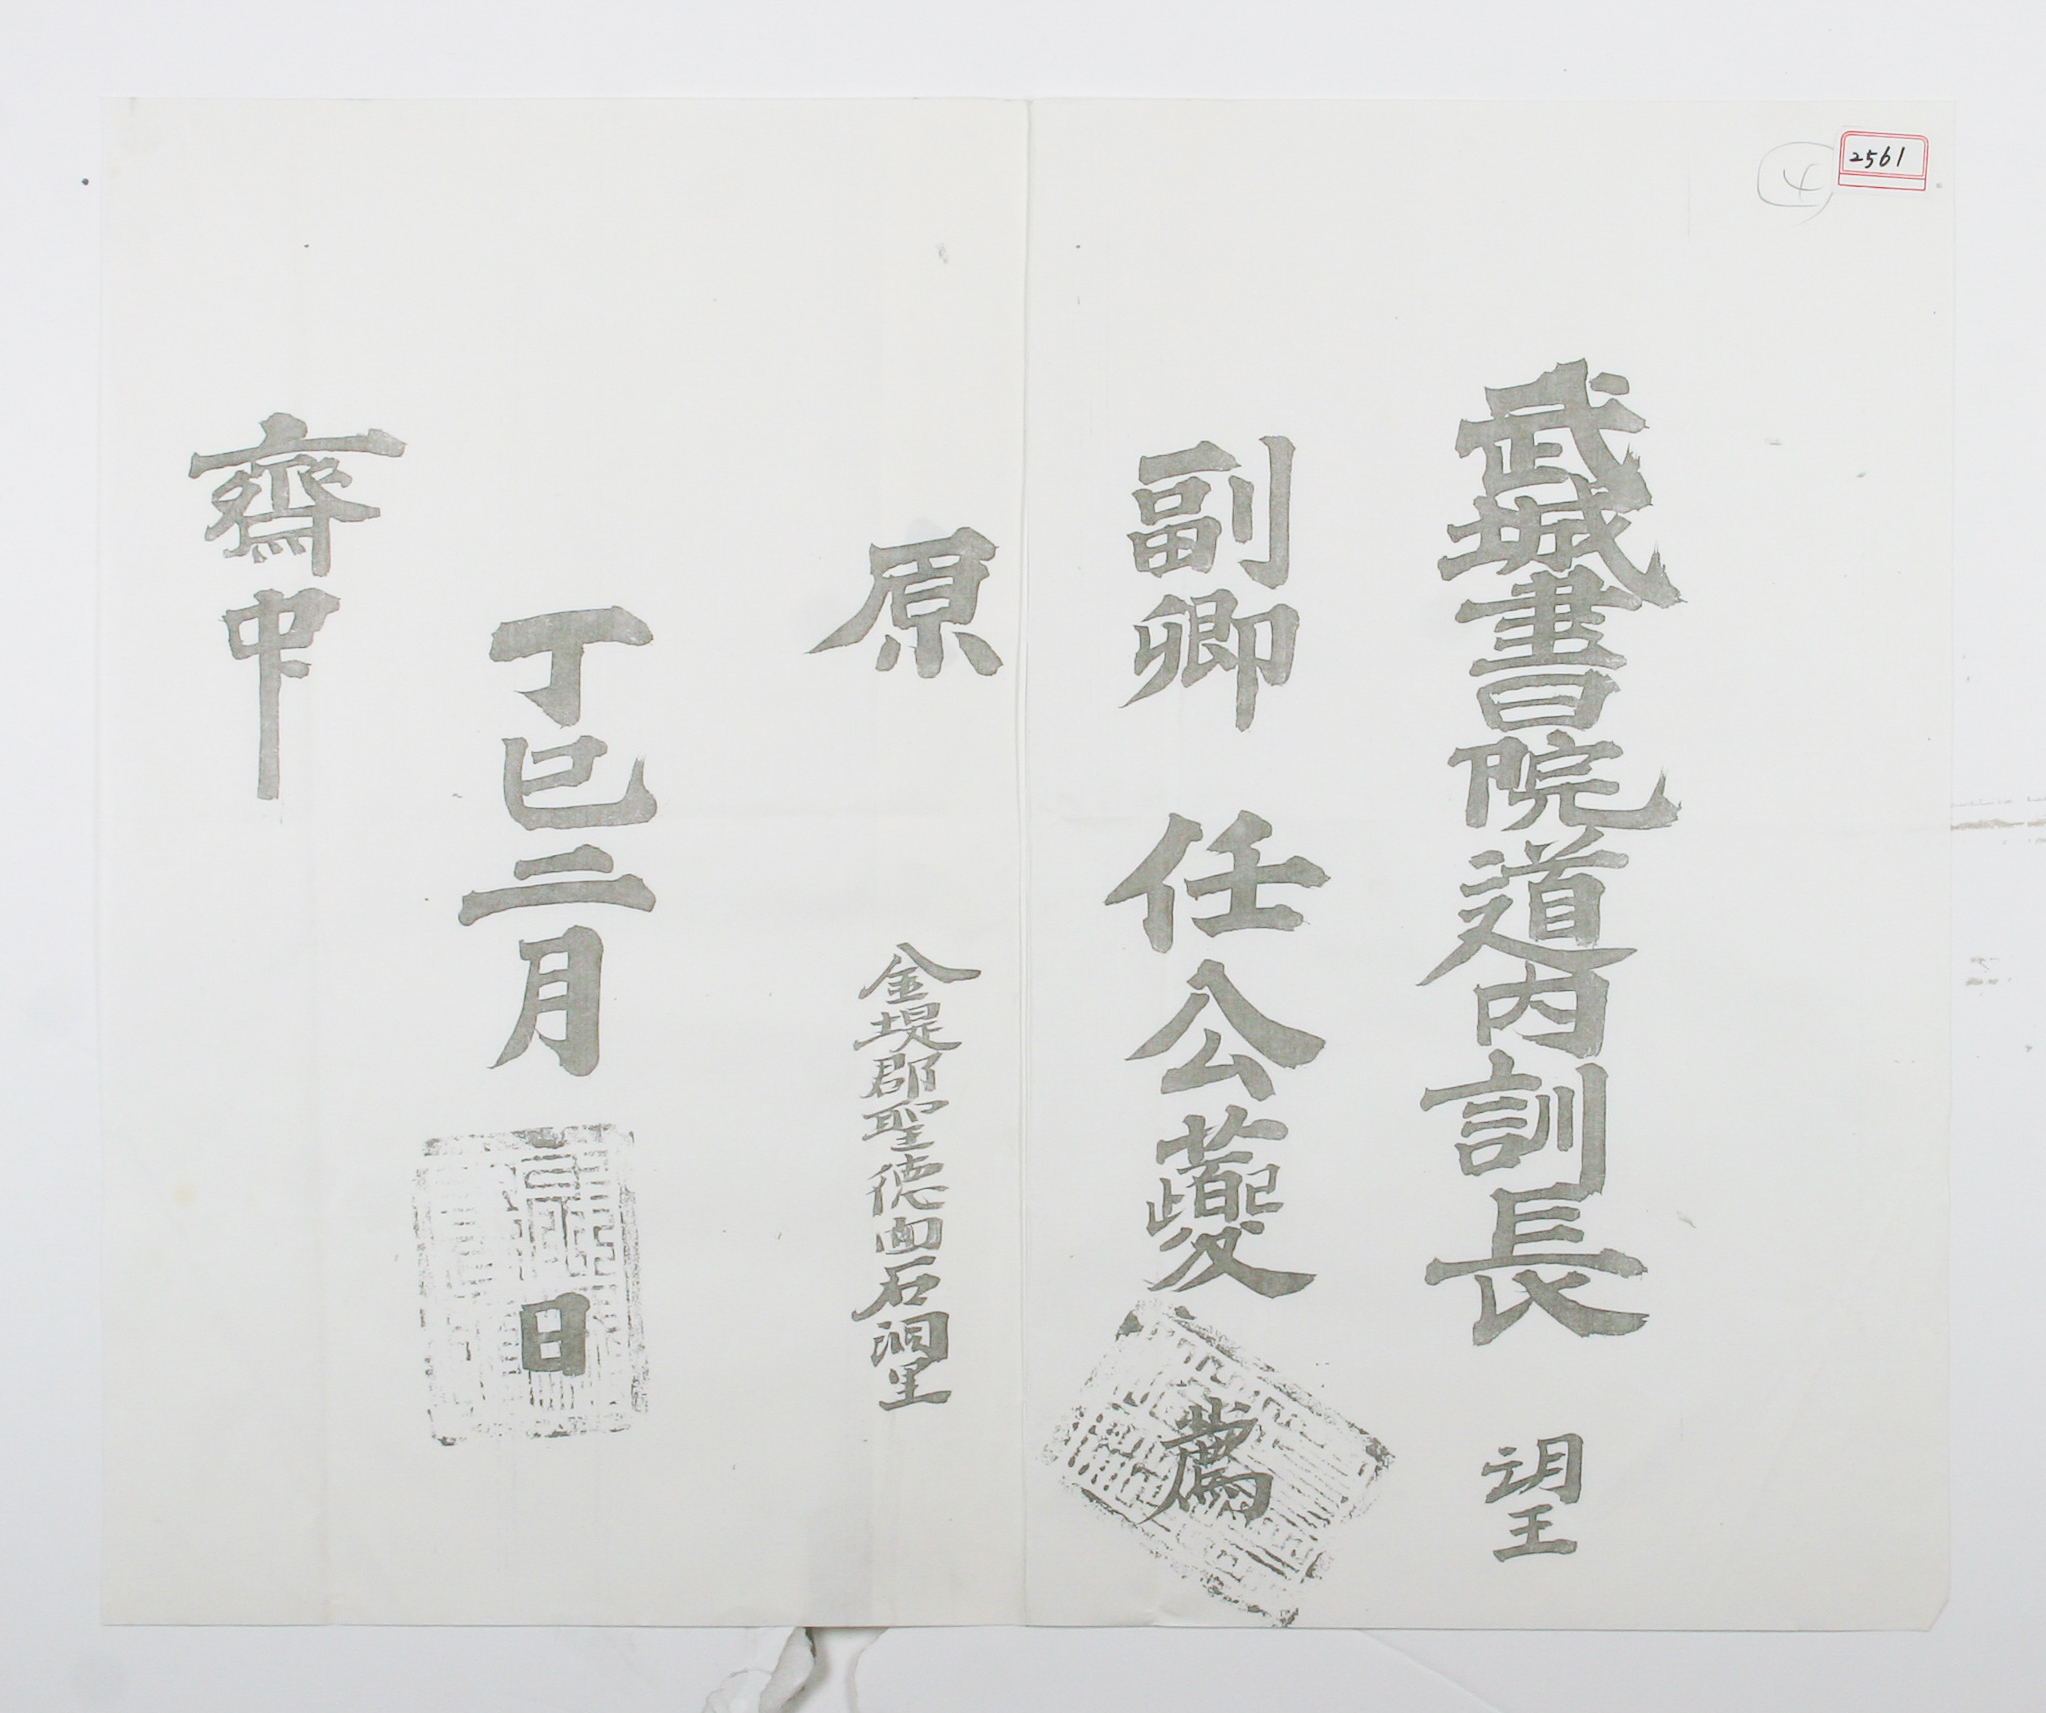 2561
武城書院道內訓長 望
副卿 任公夔 薦
原
金堤郡聖德面石洞里
丁巳二月 日
齋中